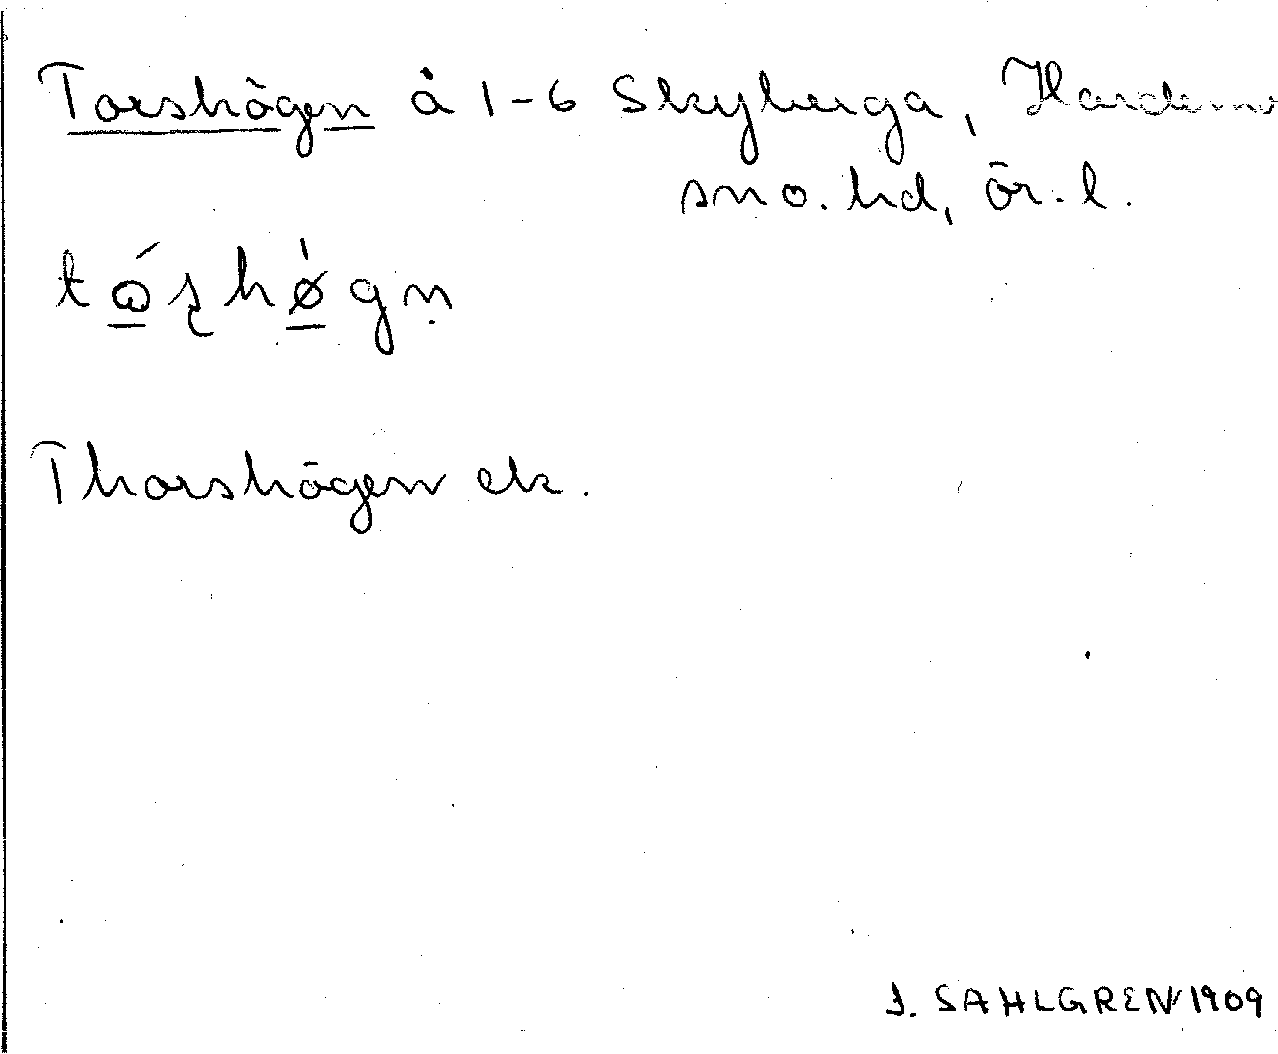 Torshögen å 1-6 Skyberga, Hardemo
sn o. hd, Ör. l.
tóşhǿgṇ
Thorshögen ek.
J. SAHLGREN 1909